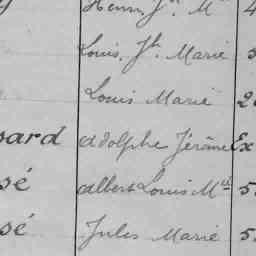 Henri Jh M
Louis, Jh Marie
Louis Marie 2
sard Adolphe Jérôme Ex
sé Albert Louis Mie 5
sé Jules Marie 5